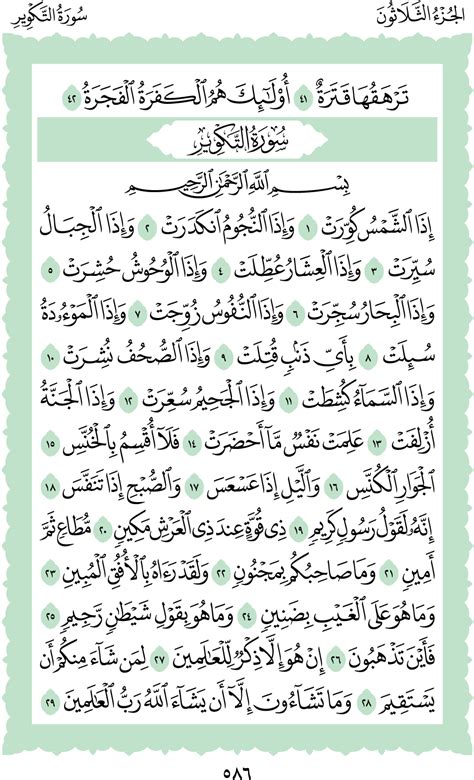 الجُزْءُ الثَّلَاثُونَ
سُورَةُ التَّكْوِيرِ
تَرْهَقُهَا قَتَرَةٌ ٤١ أُوْلَٰٓئِكَ هُمُ الْكَفَرَةُ الْفَجَرَةُ ٤٢
سُورَةُ التَّكْوِيرِ
بِسْمِ اللَّهِ الرَّحْمَٰنِ الرَّحِيمِ
إِذَا الشَّمْسُ كُوِّرَتْ ١ وَإِذَا النُّجُومُ انكَدَرَتْ ٢ وَإِذَا الْجِبَالُ
سُيِّرَتْ ٣ وَإِذَا الْعِشَارُ عُطِّلَتْ ٤ وَإِذَا الْوُحُوشُ حُشِرَتْ ٥
وَإِذَا الْبِحَارُ سُجِّرَتْ ٦ وَإِذَا النُّفُوسُ زُوِّجَتْ ٧ وَإِذَا الْمَوْءُۥدَةُ
سُئِلَتْ ٨ بِأَيِّ ذَنۢبٍ قُتِلَتْ ٩ وَإِذَا الصُّحُفُ نُشِرَتْ ١٠
وَإِذَا السَّمَآءُ كُشِطَتْ ١١ وَإِذَا الْجَحِيمُ سُعِّرَتْ ١٢ وَإِذَا الْجَنَّةُ
أُزْلِفَتْ ١٣ عَلِمَتْ نَفْسٌ مَّآ أَحْضَرَتْ ١٤ فَلَآ أُقْسِمُ بِالْخُنَّسِ ١٥
الْجَوَارِ الْكُنَّسِ ١٦ وَالَّيْلِ إِذَا عَسْعَسَ ١٧ وَالصُّبْحِ إِذَا تَنَفَّسَ ١٨
إِنَّهُۥ لَقَوْلُ رَسُولٍ كَرِيمٍ ١٩ ذِي قُوَّةٍ عِندَ ذِي الْعَرْشِ مَكِينٍ ٢٠ مُّطَاعٍ ثَمَّ
أَمِينٍ ٢١ وَمَا صَاحِبُكُم بِمَجْنُونٍ ٢٢ وَلَقَدْ رَءَاهُ بِالْأُفُقِ الْمُبِينِ ٢٣
وَمَا هُوَ عَلَى الْغَيْبِ بِضَنِينٍ ٢٤ وَمَا هُوَ بِقَوْلِ شَيْطَٰنٍ رَّجِيمٍ ٢٥
فَأَيْنَ تَذْهَبُونَ ٢٦ إِنْ هُوَ إِلَّا ذِكْرٌ لِّلْعَٰلَمِينَ ٢٧ لِمَن شَآءَ مِنكُمْ أَن
يَسْتَقِيمَ ٢٨ وَمَا تَشَآءُونَ إِلَّآ أَن يَشَآءَ اللَّهُ رَبُّ الْعَٰلَمِينَ ٢٩
٥٨٦